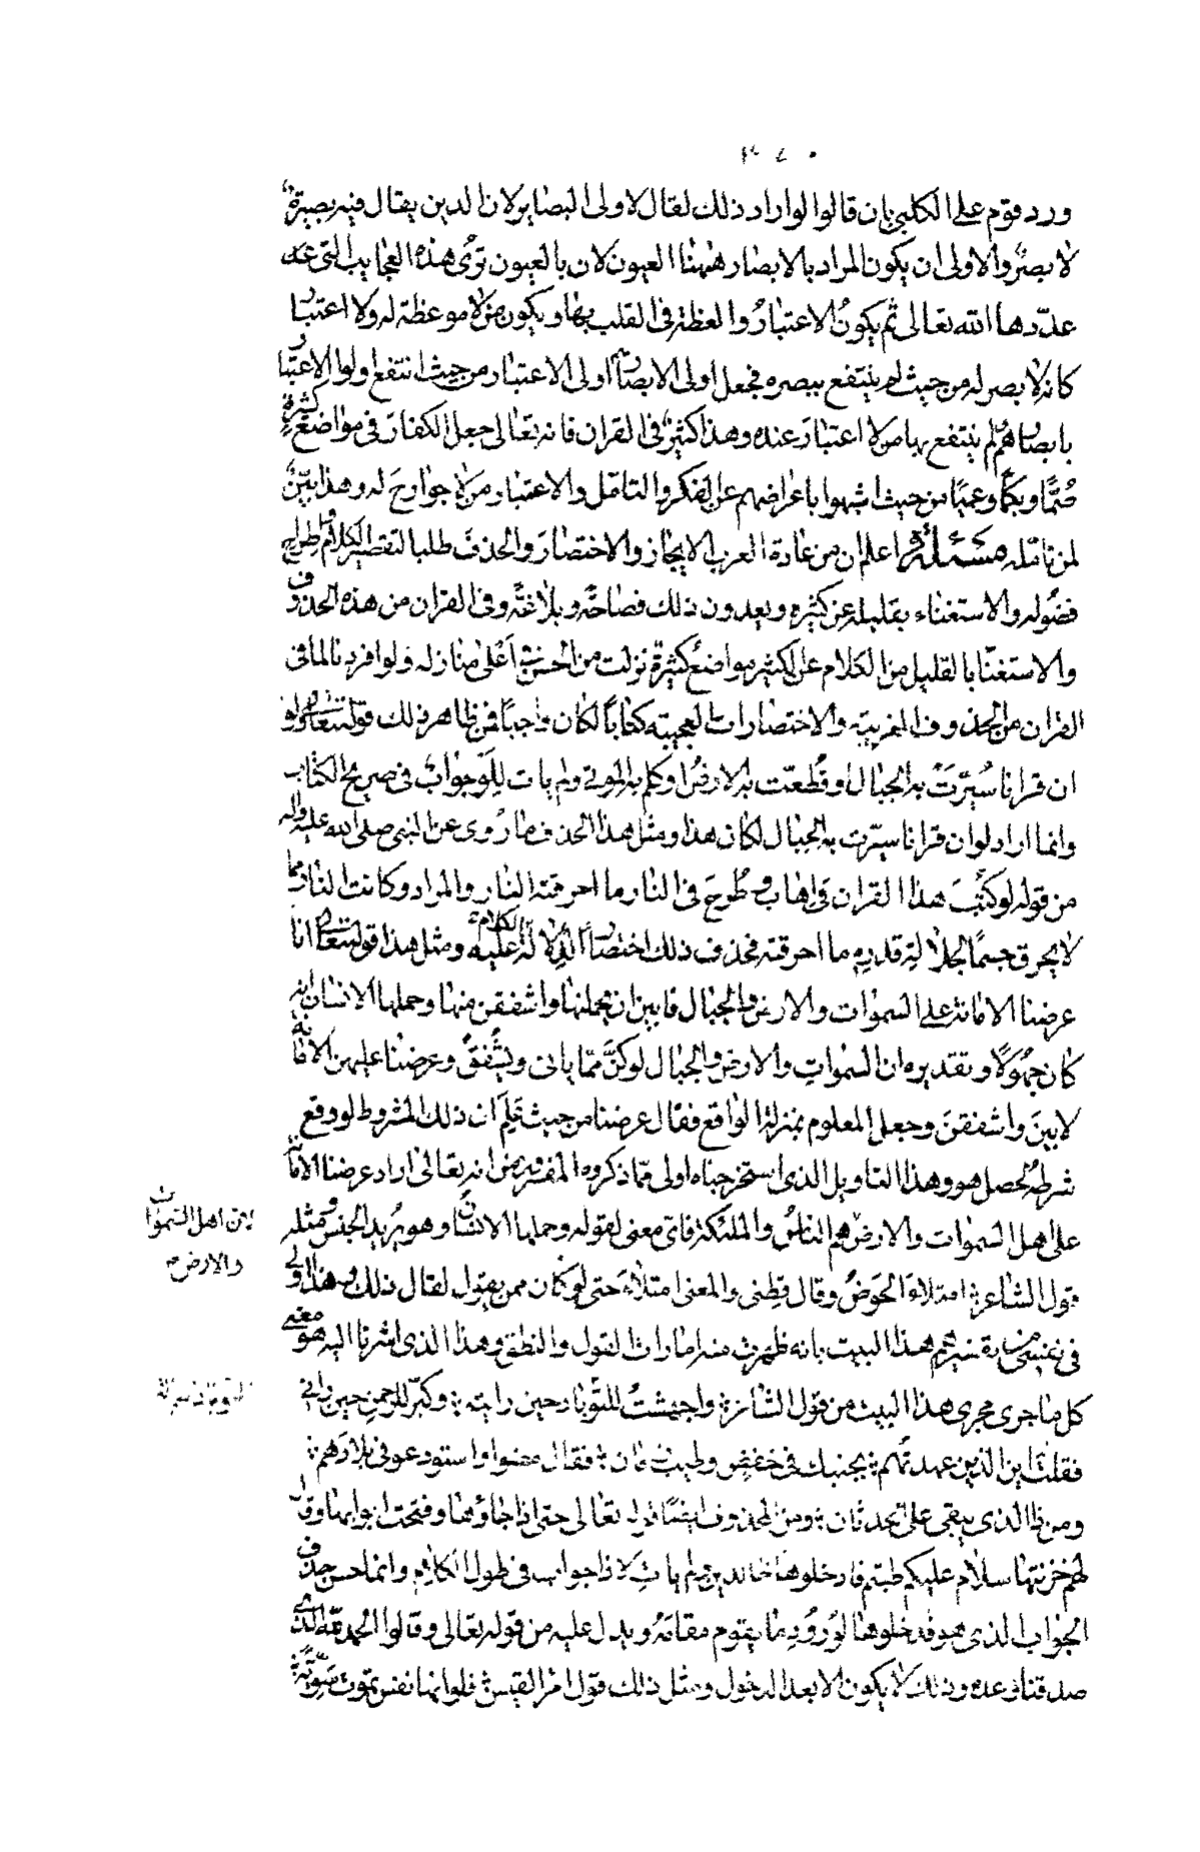 ٣٧٠
ورد قوم على الكلبي بان قالوا لو اراد ذلك لقال لاولى البصاير لان الدين يقال فيه بصيرة
لا بصر والاولى ان يكون المراد بالابصار ههنا العيون لان بالعيون ترى هذه العجايب التى عد
عدّدها الله تعالى ثم يكونُ الاعتبارُ والعظة فى القلب بها ويكون من لا موعظة له ولا اعتبار
كانه لا بصر له من حيث لم ينتفع ببصره فجعل اولى الابصار اولى الاعتبار من حيث انتفع اولوا الاعتبار
بابصارهم لم ينتفع بها من لا اعتبارَ عنده وهذا كثيرٌ فى القران فانه تعالى جعل الكفارَ فى مواضع كثيرة
صُمًّا وبكمًا وعميًا من حيث اشبهوا باعراضهم عن الفكر والتامّل والاعتبار من لا جوارحَ له وهذا بيّنٌ
لمن تامّله مسئلة اعلم ان من عادة العرب الايجاز والاختصارَ والحذفَ طلبا لتقصير الكلام وطراح
فضُوله والاستغناء بقليله عن كثيره ويعدون ذلك فصاحةً وبلاغةً وفى القران من هذه الحذوف
والاستغناء بالقليل من الكلام عن الكثير مواضعُ كثيرةٌ نزلت من الحسن فى اَعْلى منازله ولو افردنا لما فى
القران من الحذوف الغريبة والاختصارات العجيبة كتاباً لكان واجباً فمن ظاهر ذلك قوله تعالى ولو
ان قرانا سُيّرَتْ به الجبال او قُطّعت به الارضُ او كلم به الموتى ولم يات لِلَوْ جوابٌ فى صريح الكتاب
وانما اراد لو ان قرانا سيّرت به الجبال لكان هذا ومثل هذا الحذف ما رُوى عن النبى صلى الله عليه واله
من قوله لو كُتِبَ هذا القران فى اهابٍ و طُرِحَ فى النار ما احرقته النار والمراد وكانت النار مما
لا يحرق جسمًا لجلالة قدره ما احرقته فحذف ذلك اختصارًا لدلالة الكلام عليه ومثل هذا قوله تعالى انا
عرضنا الامانة على السموات والارض والجبال فابين ان يحملنها واشفقن منها وحملها الانسان انه
كان جهولًا وتقديره ان السمواتِ والارض والجبال لو كنَّ ممّا يابى ويُشفقُ وعرضنا عليهن الامانة
لابينَ واشفقنَ وجعل المعلوم بمنزلة الواقع فقال عرضنا من حيث عَلِمَ ان ذلك المشروط لو وقع
شرطه لحصل هو وهذا التاويل الذى استخرجناه اولى ممّا ذكروه المفسرون من انه تعالى اراد عرضنا الامانة
على اهل السموات والارض هم الناسُ والملئكة فاىّ معنى لقوله وحملها الانسانُ وهو يُريد الجنس ومثله
لان اهل السموات
والارض
قول الشاعر امتلاءَ الحَوضُ وقال قِطنى والمعنى امتلاءَ حتى لو كان ممن يقول لقال ذلك وهذا اولى
فى نفسى من تفسيرهم هذا البيت بانه ظهرت منه امارات القول والنطق وهذا الذى اشرنا اليه هو معنى
كل ما جرى مجرى هذا البيت من قول الشاعر واجهشتُ للتّوباد حين رايته وكبّر للرحمن حين رانى
فقلت اين الذين عهدتُهم بجنبك فى خفضٍ وطيب زمان فقال مضوا واستودعونى بلادَهم
ومن ذا الذى يبقى على الحدثان ومن المحذوف ايضًا قوله تعالى حتى اذا جاؤها وفتحت ابوابها وقال
لهم خزنتها سلام عليكم طبتم فادخلوها خالدين ولم يات لاذا جواب فى طول الكلام وانما حسن حذف
الجواب الذى هو فدخلوها لوُرُودِ ما يقوم مقامَهُ ويدل عليه من قوله تعالى وقالوا الحمد لله الذى
صدقنا وعده وذلك لا يكون الا بعد الدخول ومثل ذلك قول امرا القيس فلو انها نفس تموت سَوِيّةً